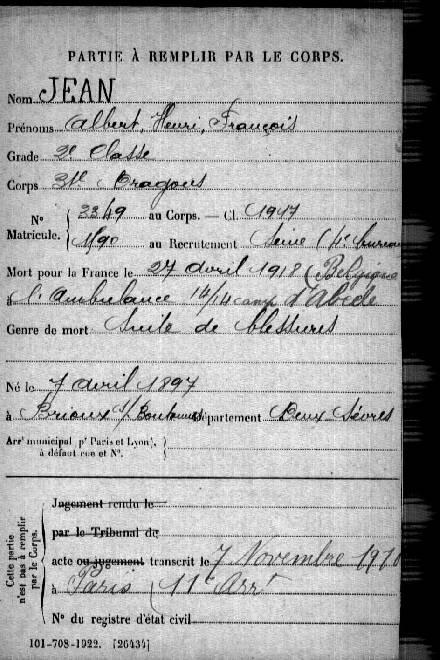 PARTIE À REMPLIR PAR LE CORPS.
Nom JEAN
Prénoms Albert, Henri, François
Grade 2e Classe
Corps Dragons
N° Matricule. 2349 au Corps. — Cl. 1917
au Recrutement Seine (4e bureau
Mort pour la France le 27 avril 1918 (Belgique
à l'Ambulance 14/14 camp d'Abeele
Genre de mort Suite de blessures
Né le 7 avril 1897
à Brioux s/Boutonne Département Deux-Sèvres
Arrt municipal (pr Paris et Lyon),
à défaut rue et N°.
Cette partie n'est pas à remplir par le Corps.
Jugement rendu le
par le Tribunal de
acte ou jugement transcrit le 7 Novembre
à Paris (11e Arrt
N° du registre d'état civil
101-708-1922. [26434]